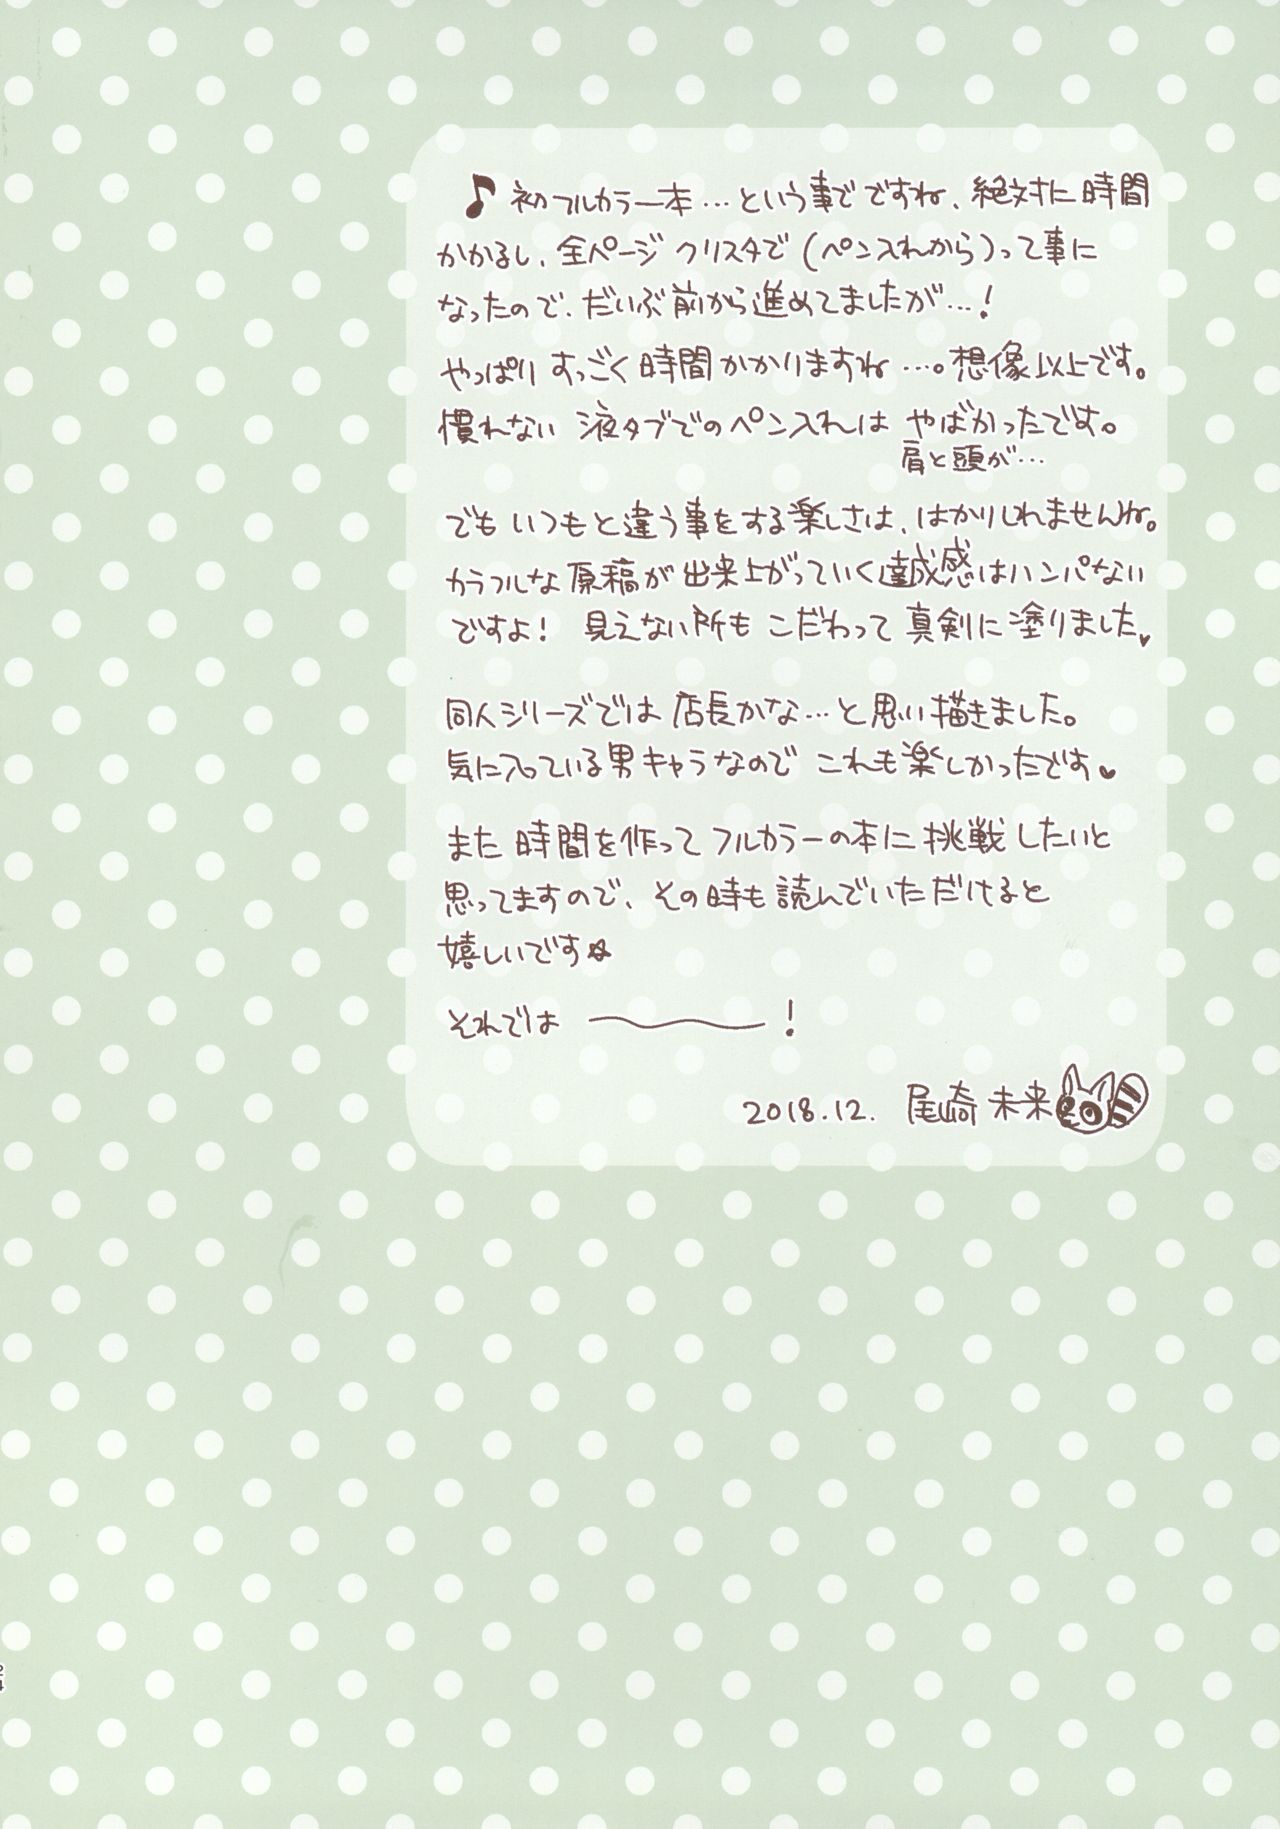 ♪初フルカラー本…という事でですね、絶対に時間
かかるし、全ページ クリスタで(ペン入れから)って事に
なったので、だいぶ前から進めてましたが…!
やっぱり すっごく時間かかりますね…。想像以上です。
慣れない 液タブでのペン入れは やばかったです。
肩と頭が…
でも いつもと違う事をする楽しさは、はかりしれませんね。
カラフルな 原稿が 出来上がっていく達成感はハンパない
ですよ! 見えない所も こだわって 真剣に塗りました♥
同人シリーズでは 店長かな…と思い描きました。
気に入っている男キャラなので これも楽しかったです♥
また 時間を作って フルカラーの本に 挑戦したいと
思ってますので、その時も 読んでいただけると
嬉しいです☆
それでは 〜!
2018.12. 尾崎 未来
24